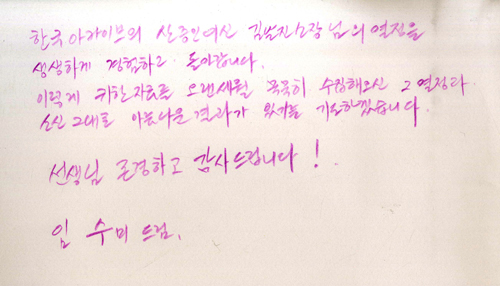 한국 아카이브의 산 증인이신 김달진 소장님의 열정을
생생하게 경험하고 돌아갑니다.
이렇게 귀한 자료를 오랜세월 꾹꾹히 수집해오신 그 열정과
소신 그대로 아름다운 결과가 있기를 기도하겠습니다.
선생님 존경하고 감사드립니다!
임 수미 드림.